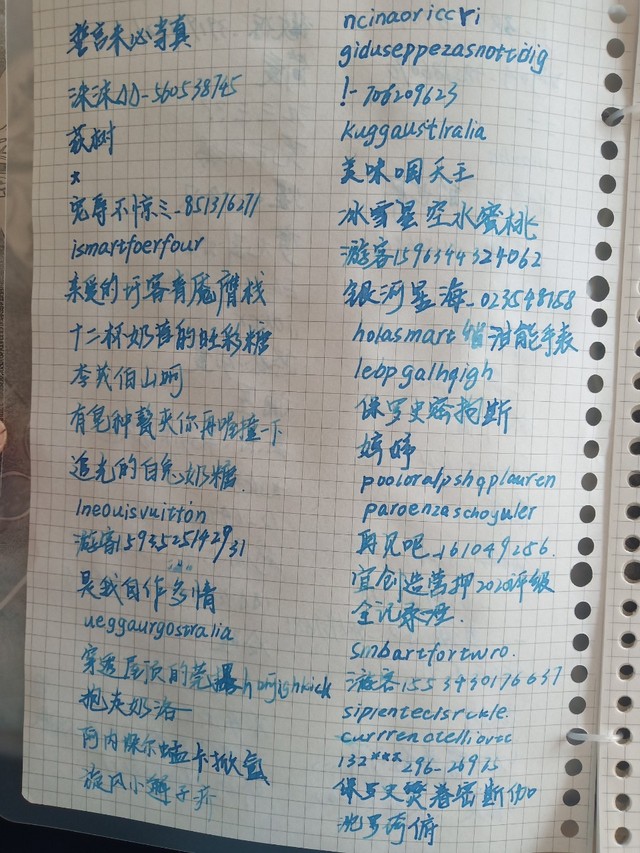 誓言未必当真
沫沫ΔΔ-560538745
荻树
*
宠辱不惊三-851376271
ismartfoerfour
亲爱的 有魔
十二杯奶昔的旺彩糖
李 伯山
有 种 夹你再 撞一下
追光的白兔奶糖.
lneouisvuitton
游客1593525142931
是我自作"多情"
ueggaurgostralia
穿透屋顶的 honjighkick
抱夹奶洛
阿内 尔 卡
旋风小 子
ncinaoriccri
giduseppezasnottiig
!-706209623
kuggaustlralia
美味咽天王
冰雪星空水蜜桃
游客1596344324062
银河星海-023548158
holasmart 能手表
lebpgalhqigh
保罗史密 斯
婷婷
pooloralpshqplauren
paroenzaschoyuler
再见吧-161049256.
宜创造营押2020评级
全记
sinbartfortwro.
游客1553430176637
siplentecisrckle.
132***296-26975
保罗史 密斯